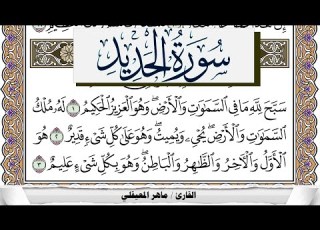 سُورَةُ الْحَدِيدِ
سَبَّحَ لِلَّهِ مَا فِي السَّمَٰوَٰتِ وَالْأَرْضِ ۖ وَهُوَ الْعَزِيزُ الْحَكِيمُ ١ لَهُ مُلْكُ
السَّمَٰوَٰتِ وَالْأَرْضِ ۖ يُحْيِي وَيُمِيتُ ۖ وَهُوَ عَلَىٰ كُلِّ شَيْءٍ قَدِيرٌ ٢ هُوَ
الْأَوَّلُ وَالْآخِرُ وَالظَّاهِرُ وَالْبَاطِنُ ۖ وَهُوَ بِكُلِّ شَيْءٍ عَلِيمٌ ٣
القارئ / ماهر المعيقلي